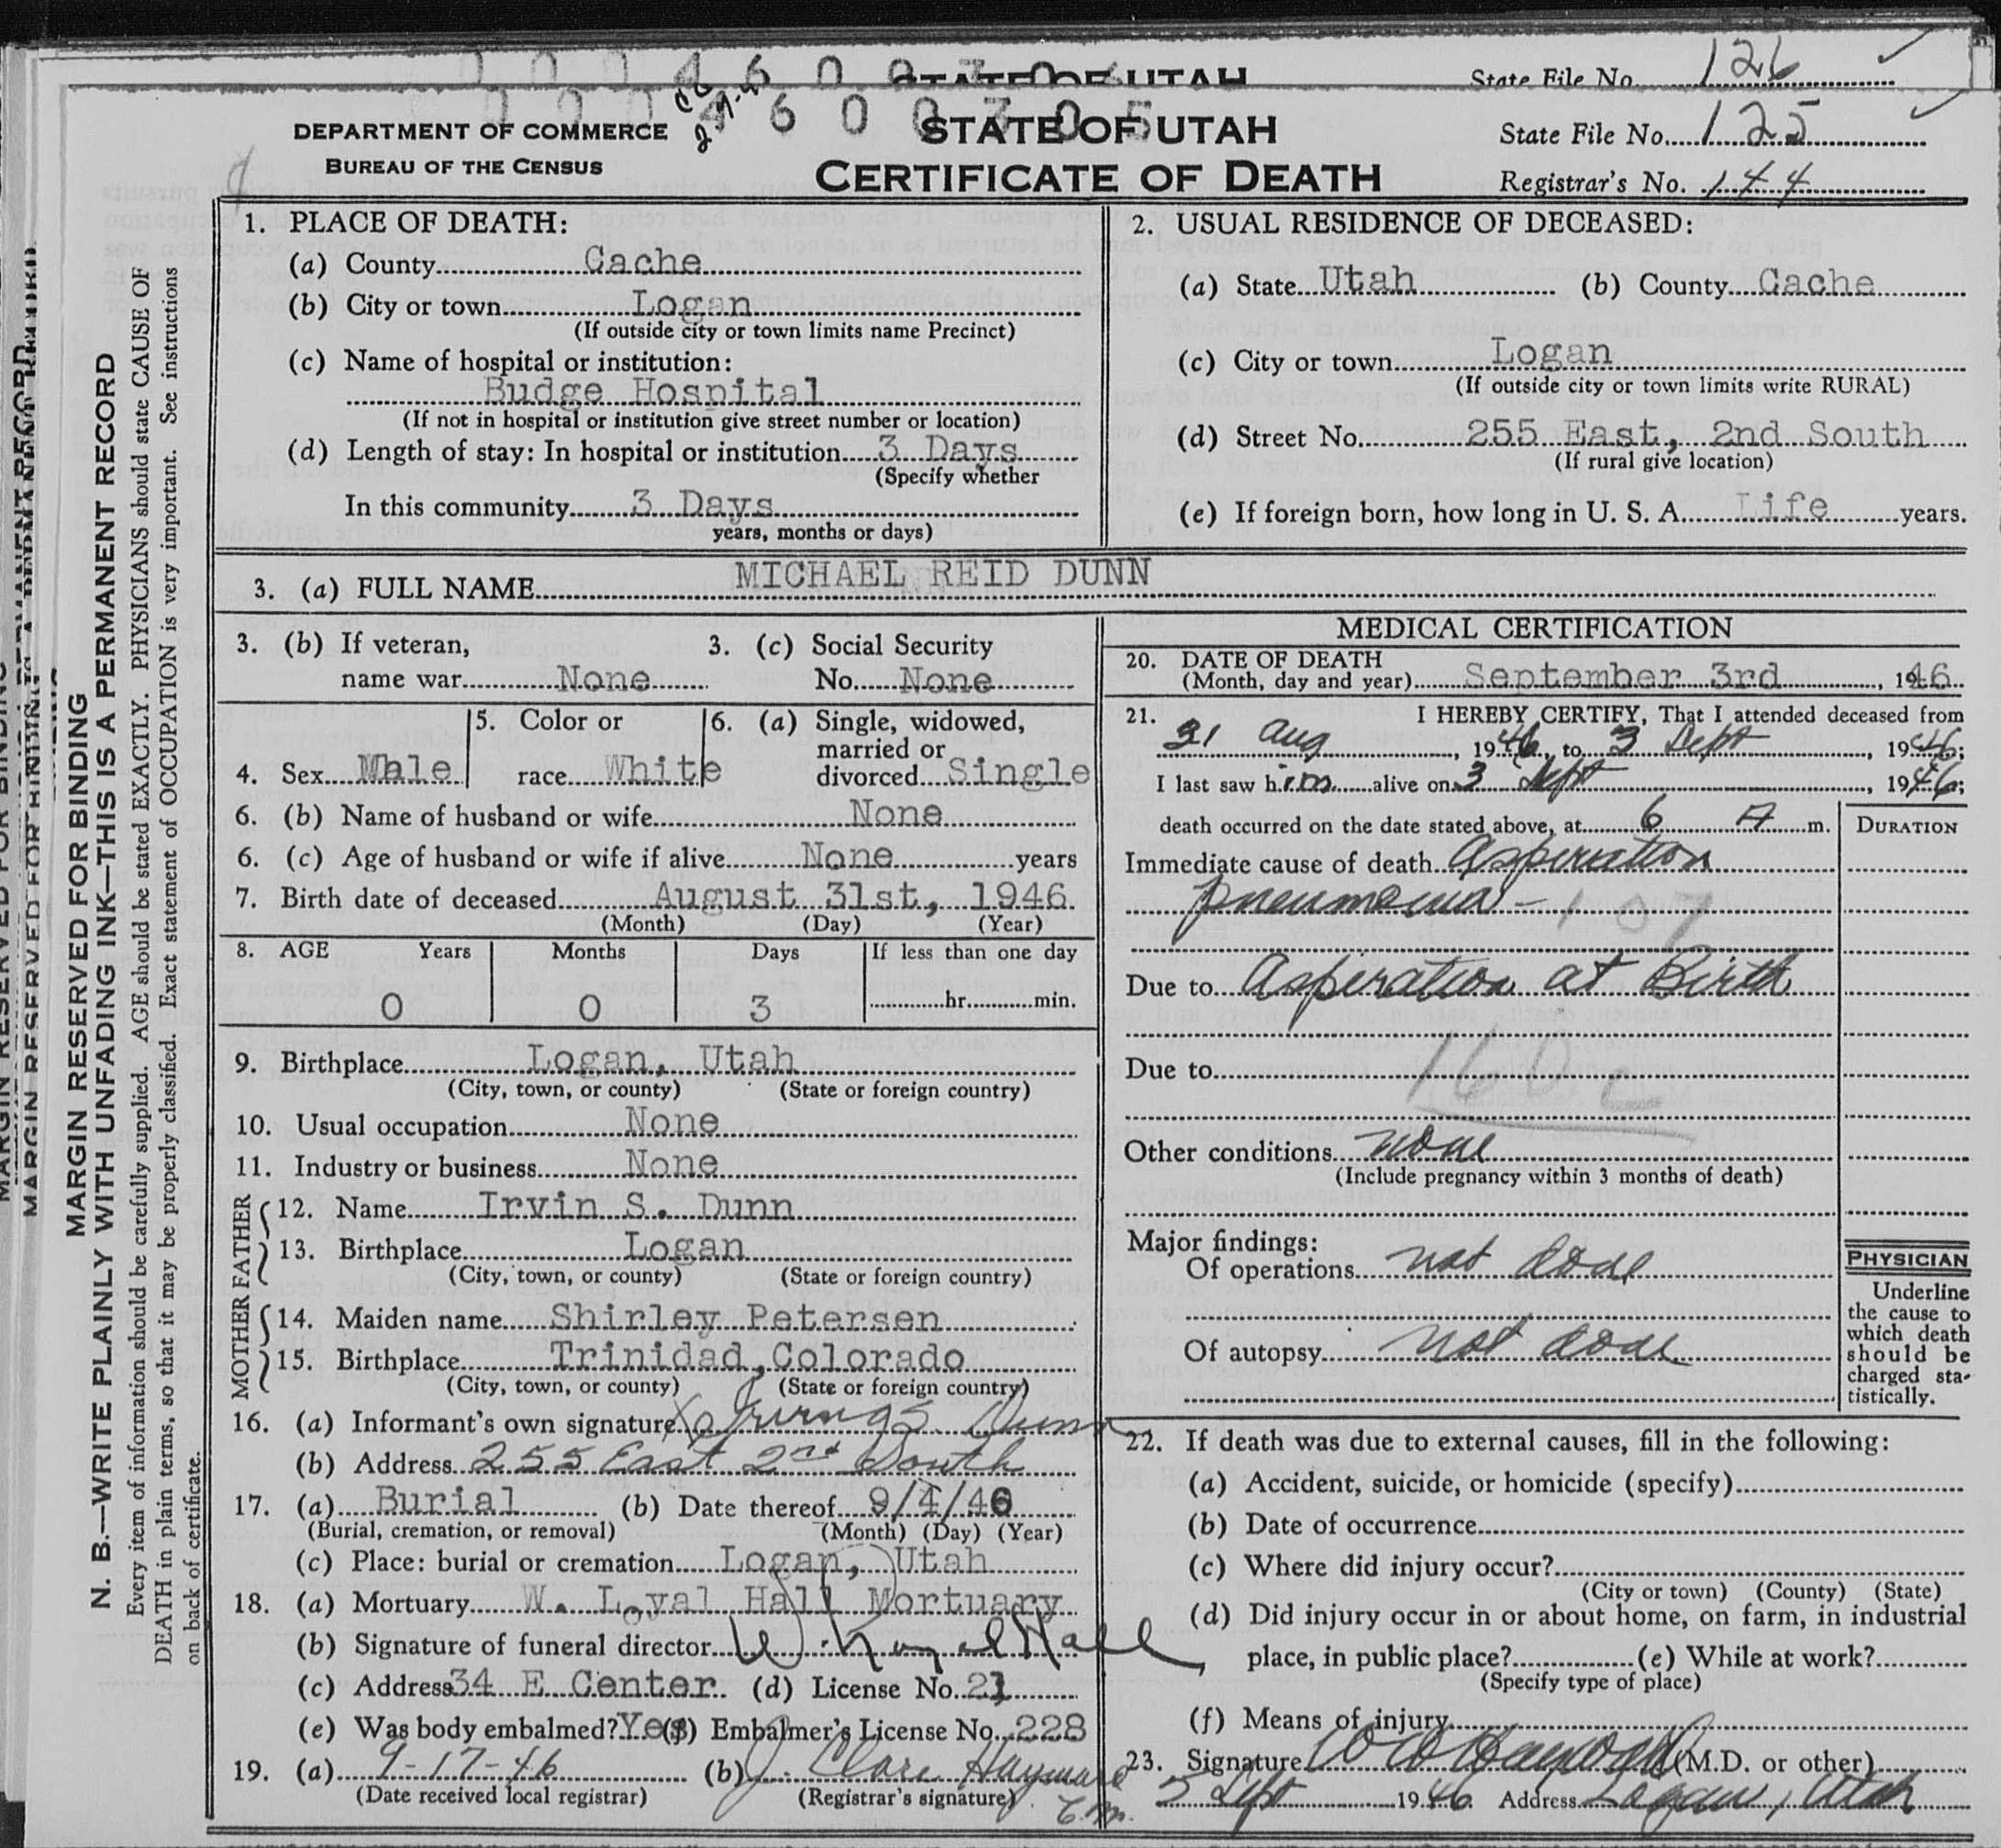 STATE OF UTAH
State File No. 126
DEPARTMENT OF COMMERCE
BUREAU OF THE CENSUS
STATE OF UTAH
CERTIFICATE OF DEATH
State File No. 125
Registrar's No. 144
MARGIN RESERVED FOR BINDING
N. B.—WRITE PLAINLY WITH UNFADING INK—THIS IS A PERMANENT RECORD
Every item of information should be carefully supplied. AGE should be stated EXACTLY. PHYSICIANS should state CAUSE OF
DEATH in plain terms, so that it may be properly classified. Exact statement of OCCUPATION is very important. See instructions
on back of certificate.
1. PLACE OF DEATH:
(a) County Cache
(b) City or town Logan
(If outside city or town limits name Precinct)
(c) Name of hospital or institution:
Budge Hospital
(If not in hospital or institution give street number or location)
(d) Length of stay: In hospital or institution 3 Days
(Specify whether
In this community 3 Days
years, months or days)
2. USUAL RESIDENCE OF DECEASED:
(a) State Utah (b) County Cache
(c) City or town Logan
(If outside city or town limits write RURAL)
(d) Street No. 255 East, 2nd South
(If rural give location)
(e) If foreign born, how long in U. S. A. Life years.
3. (a) FULL NAME MICHAEL REID DUNN
3. (b) If veteran, 3. (c) Social Security
name war None No. None
4. Sex Male 5. Color or race White 6. (a) Single, widowed, married or divorced Single
6. (b) Name of husband or wife None
6. (c) Age of husband or wife if alive None years
7. Birth date of deceased August 31st, 1946
(Month) (Day) (Year)
8. AGE Years Months Days If less than one day
0 0 3 hr. min.
9. Birthplace Logan, Utah
(City, town, or county) (State or foreign country)
10. Usual occupation None
11. Industry or business None
FATHER
12. Name Irvin S. Dunn
13. Birthplace Logan
(City, town, or county) (State or foreign country)
MOTHER
14. Maiden name Shirley Petersen
15. Birthplace Trinidad, Colorado
(City, town, or county) (State or foreign country)
16. (a) Informant's own signature Irving S. Dunn
(b) Address 255 East 2nd South
17. (a) Burial (b) Date thereof 9/4/46
(Burial, cremation, or removal) (Month) (Day) (Year)
(c) Place: burial or cremation Logan, Utah
18. (a) Mortuary W. Loyal Hall Mortuary
(b) Signature of funeral director W. Loyal Hall
(c) Address 34 E Center (d) License No. 21
(e) Was body embalmed? Yes (f) Embalmer's License No. 228
19. (a) 9-17-46 (b) J. Clare Hayward
(Date received local registrar) (Registrar's signature)
MEDICAL CERTIFICATION
20. DATE OF DEATH
(Month, day and year) September 3rd, 1946
21. I HEREBY CERTIFY, That I attended deceased from
31 Aug, 1946, to 3 Sept, 1946;
I last saw him alive on 3 Sept, 1946;
death occurred on the date stated above, at 6 A m. DURATION
Immediate cause of death Asperation
pneumonia - 107
Due to Asperation at Birth
Due to 160c
Other conditions none
(Include pregnancy within 3 months of death)
Major findings:
Of operations not done
Of autopsy not done
PHYSICIAN
Underline
the cause to
which death
should be
charged sta-
tistically.
22. If death was due to external causes, fill in the following:
(a) Accident, suicide, or homicide (specify)
(b) Date of occurrence
(c) Where did injury occur?
(City or town) (County) (State)
(d) Did injury occur in or about home, on farm, in industrial
place, in public place? (e) While at work?
(Specify type of place)
(f) Means of injury
23. Signature (M.D. or other)
5 Sept 1946 Address Logan, Utah